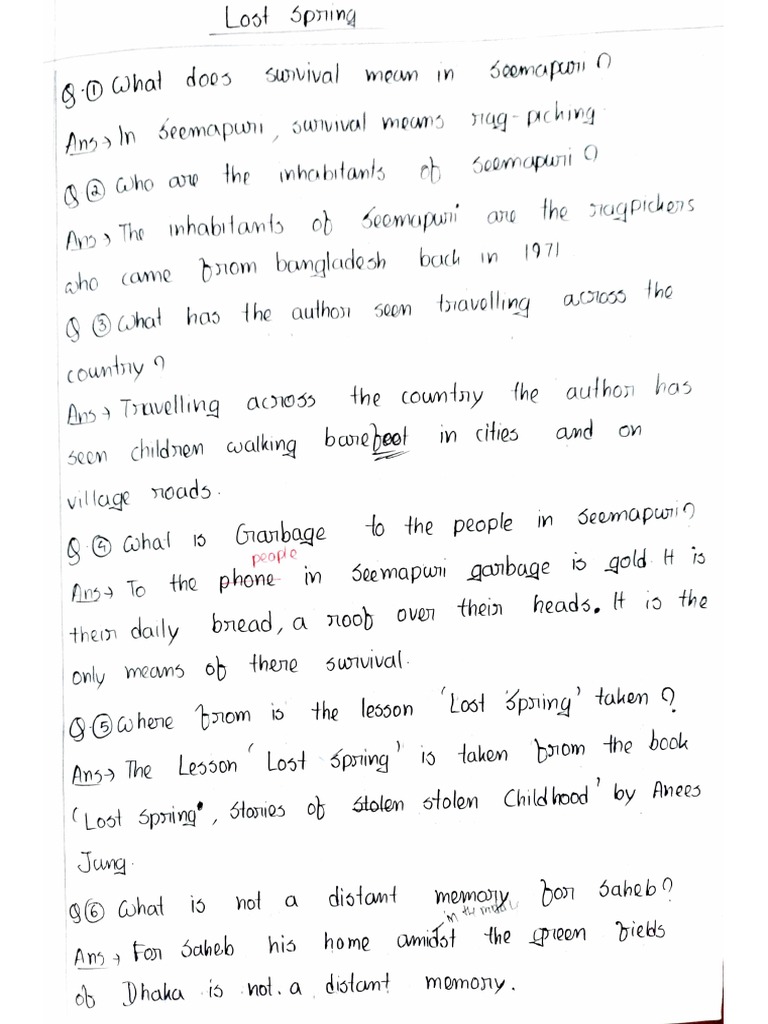 Lost Spring
Q.① What does survival mean in Seemapuri?
Ans→ In Seemapuri, survival means rag-picking.
Q② Who are the inhabitants of Seemapuri?
Ans→ The inhabitants of Seemapuri are the ragpickers
who came from bangladesh back in 1971
Q③ What has the author seen travelling across the
country?
Ans→ Travelling across the country the author has
seen children walking barefoot in cities and on
village roads.
Q.④ What is Garbage to the people in Seemapuri?
people
Ans→ To the phone in Seemapuri garbage is gold. It is
their daily bread, a roof over their heads. It is the
only means of there survival.
Q.⑤ Where from is the lesson 'Lost Spring' taken?
Ans→ The Lesson 'Lost Spring' is taken from the book
'Lost Spring', Stories of stolen stolen Childhood' by Anees
Jung.
Q⑥ What is not a distant memory for Saheb?
in the middle
Ans→ For Saheb his home amidst the green fields
of Dhaka is not. a distant memory.